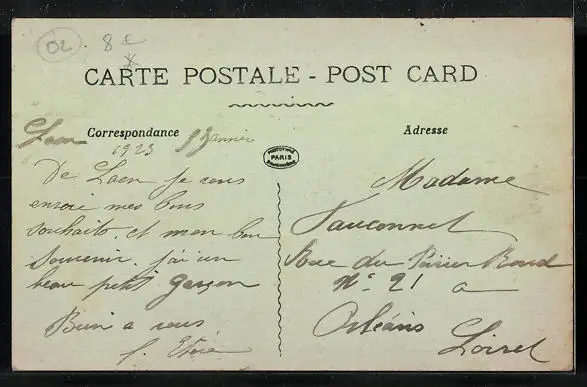 02. 8€
CARTE POSTALE - POST CARD
Correspondance
Adresse
Laon
1923 5 Janvier
PARIS
De Laon je vous
envoie mes bons
souhaits et mon bon
souvenir. j'ai un
beau petit garçon
Bien a vous
Madame
Fauconnet
Rue du Poirier Rond
N° 21 a
Orléans
Loiret